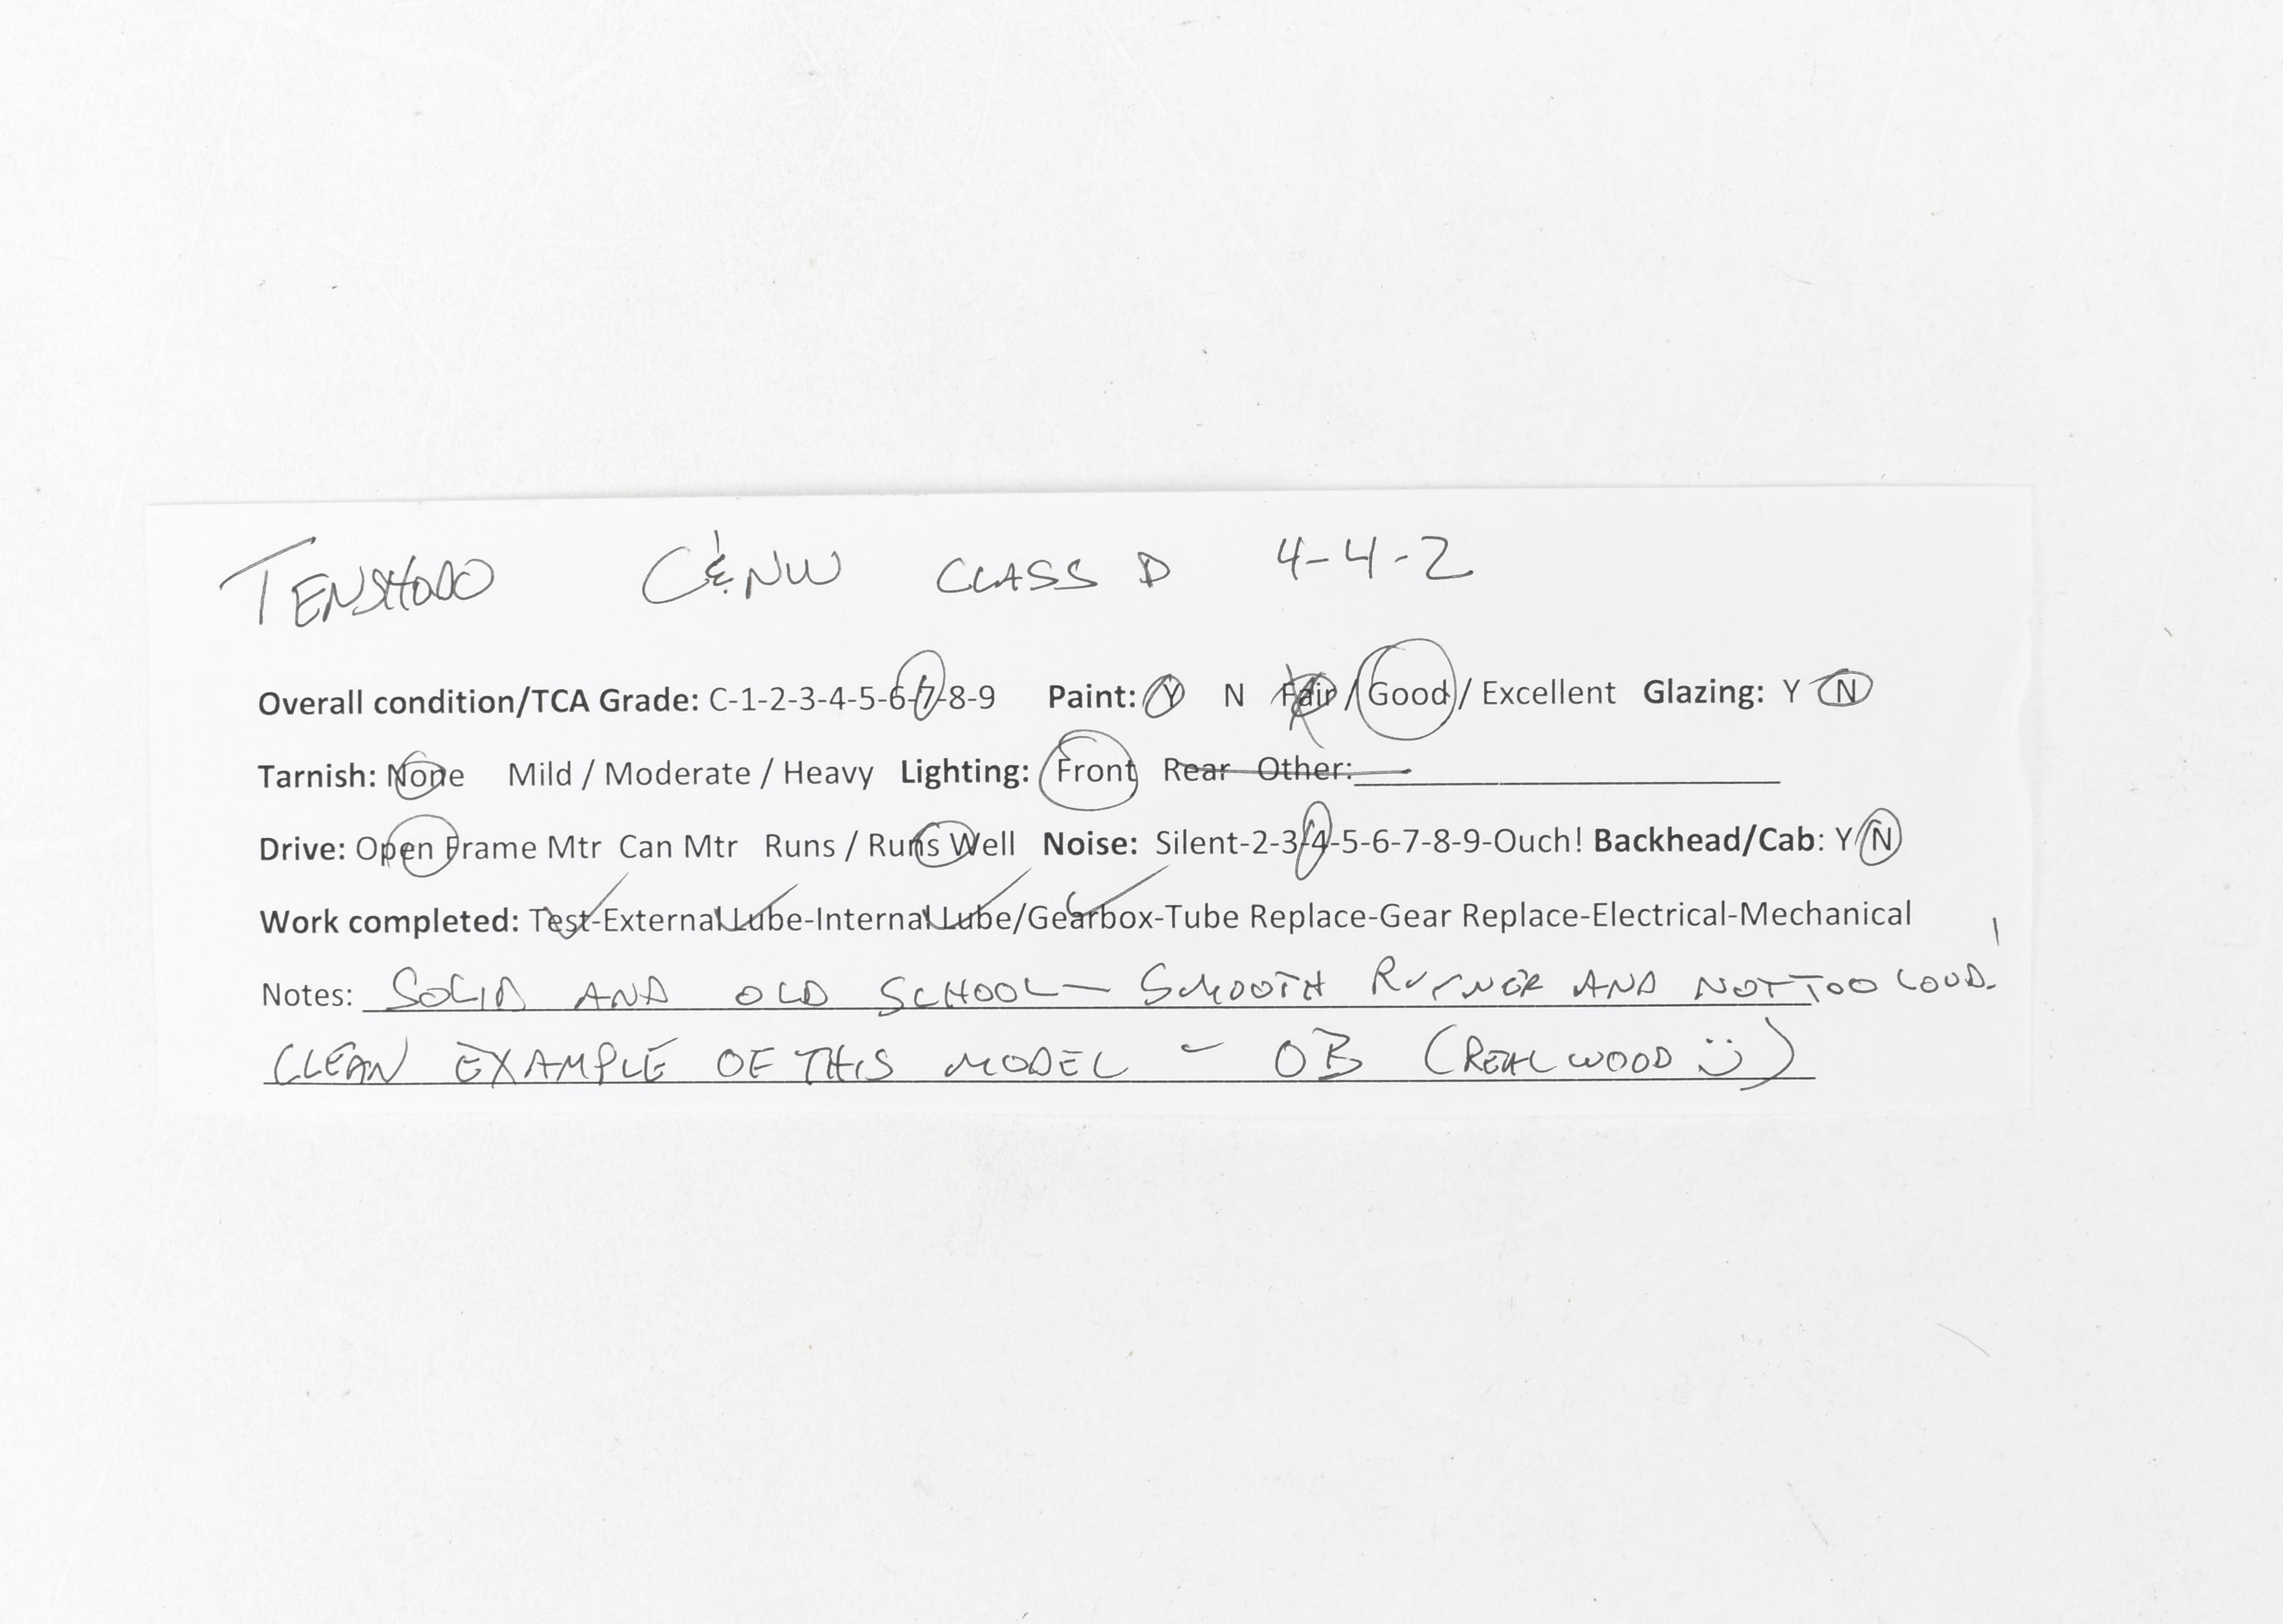 TENSHODO C&NW CLASS D 4-4-2
Overall condition/TCA Grade: C-1-2-3-4-5-6-7-8-9 Paint: Y N Fair / Good / Excellent Glazing: Y N
Tarnish: None Mild / Moderate / Heavy Lighting: Front Rear Other:
Drive: Open Frame Mtr Can Mtr Runs / Runs Well Noise: Silent-2-3-4-5-6-7-8-9-Ouch! Backhead/Cab: Y N
Work completed: Test-External Lube-Internal Lube/Gearbox-Tube Replace-Gear Replace-Electrical-Mechanical
Notes: SOLID AND OLD SCHOOL- SMOOTH RUNNER AND NOT TOO LOUD!
CLEAN EXAMPLE OF THIS MODEL - OB (REAL WOOD :))